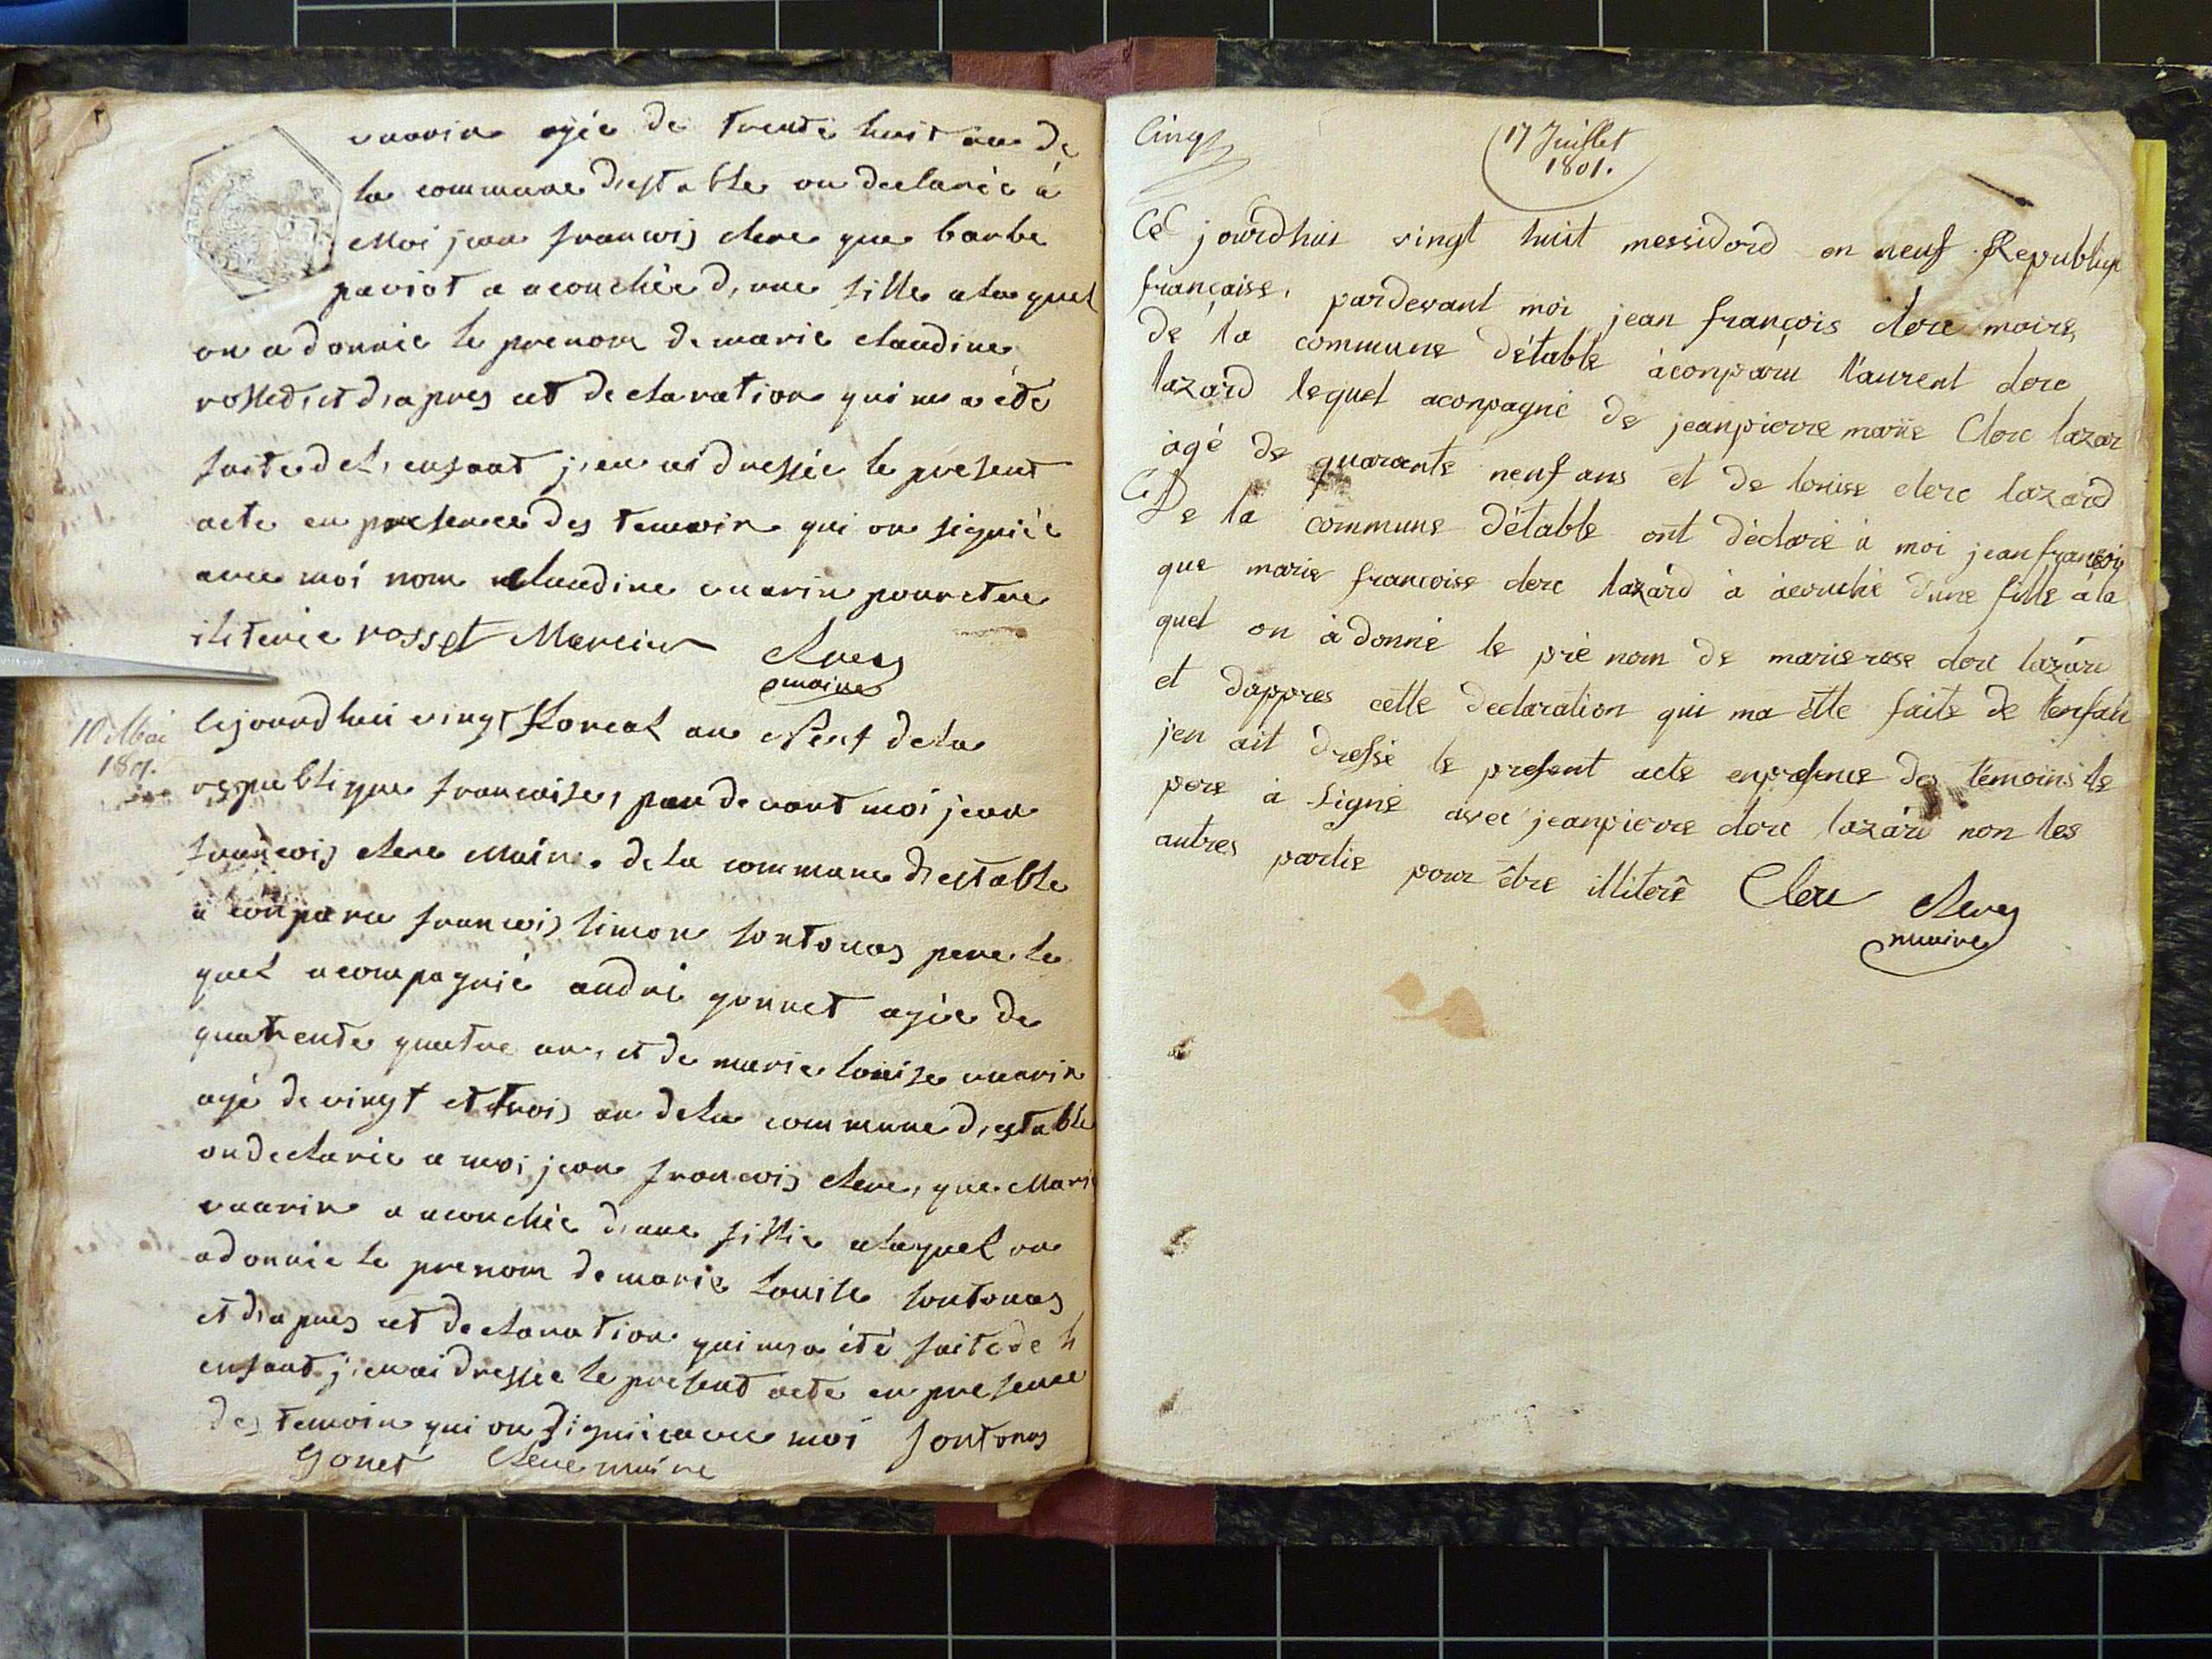 vuarin agée de trente huit an de
la commune d,estable on declarée á
Moi jean francois clerc que barbe
paviot a acouchée d,une fille a la quel
on a donnée le prenom de marie claudine
rosset, et d,apres cet declaration qui m a été
faite de l,enfant j,en ai dressée le present
acte en presence des temoin qui on signiée
avec moi nom claudine vuarin pour etre
iliterée rosset Mercier Clerc
maire
10 Mai
1801.
Cejourdhui vingt floreal an Neuf de la
republique francaise, par devant moi jean
francois clerc Maire de la commune d,estable
a conparu francois simon fontonas pere le
quel acompagnié andré gonnet agée de
quatrente quatre an, et de marie louise vuarin
agé de vingt et trois an de la commune d,estable
on declarée a moi jean francois clerc, que Marie
vuarin a acouchée d,une fillie a laquel on
a donnée le prenom de marie louise fontonas
et d,apres cet declaration qui m,a été faite de l
enfant j,en ai dressée le present acte en presence
des temoin qui on signiée avec moi fontonas
gonet Clerc maire
Cinq
17 Juillet
1801.
Cé jourdhui vingt huit messidord an neuf Republiqe
française, pardevant moi jean françois clerc maire,
de la commune détable àconparu laurent clerc
lazard lequel aconpagné de jeanpierre marie Clerc lazar
agé de quarante neuf ans et de louise clerc lazard
De la commune détable ont déclaré a moi jean francois
que marie francoise clerc lazard à acouché d'une fille a la
quel on à donné le pré nom de marie rose clerc lazard
et dappres cette declaration qui ma étte faite de lenfan
j'en ait dressé le present acte enpresence des témoins le
pere à signé avec jeanpierre clerc lazard non les
autres partie pour être illiteré Clerc Clerc
maire